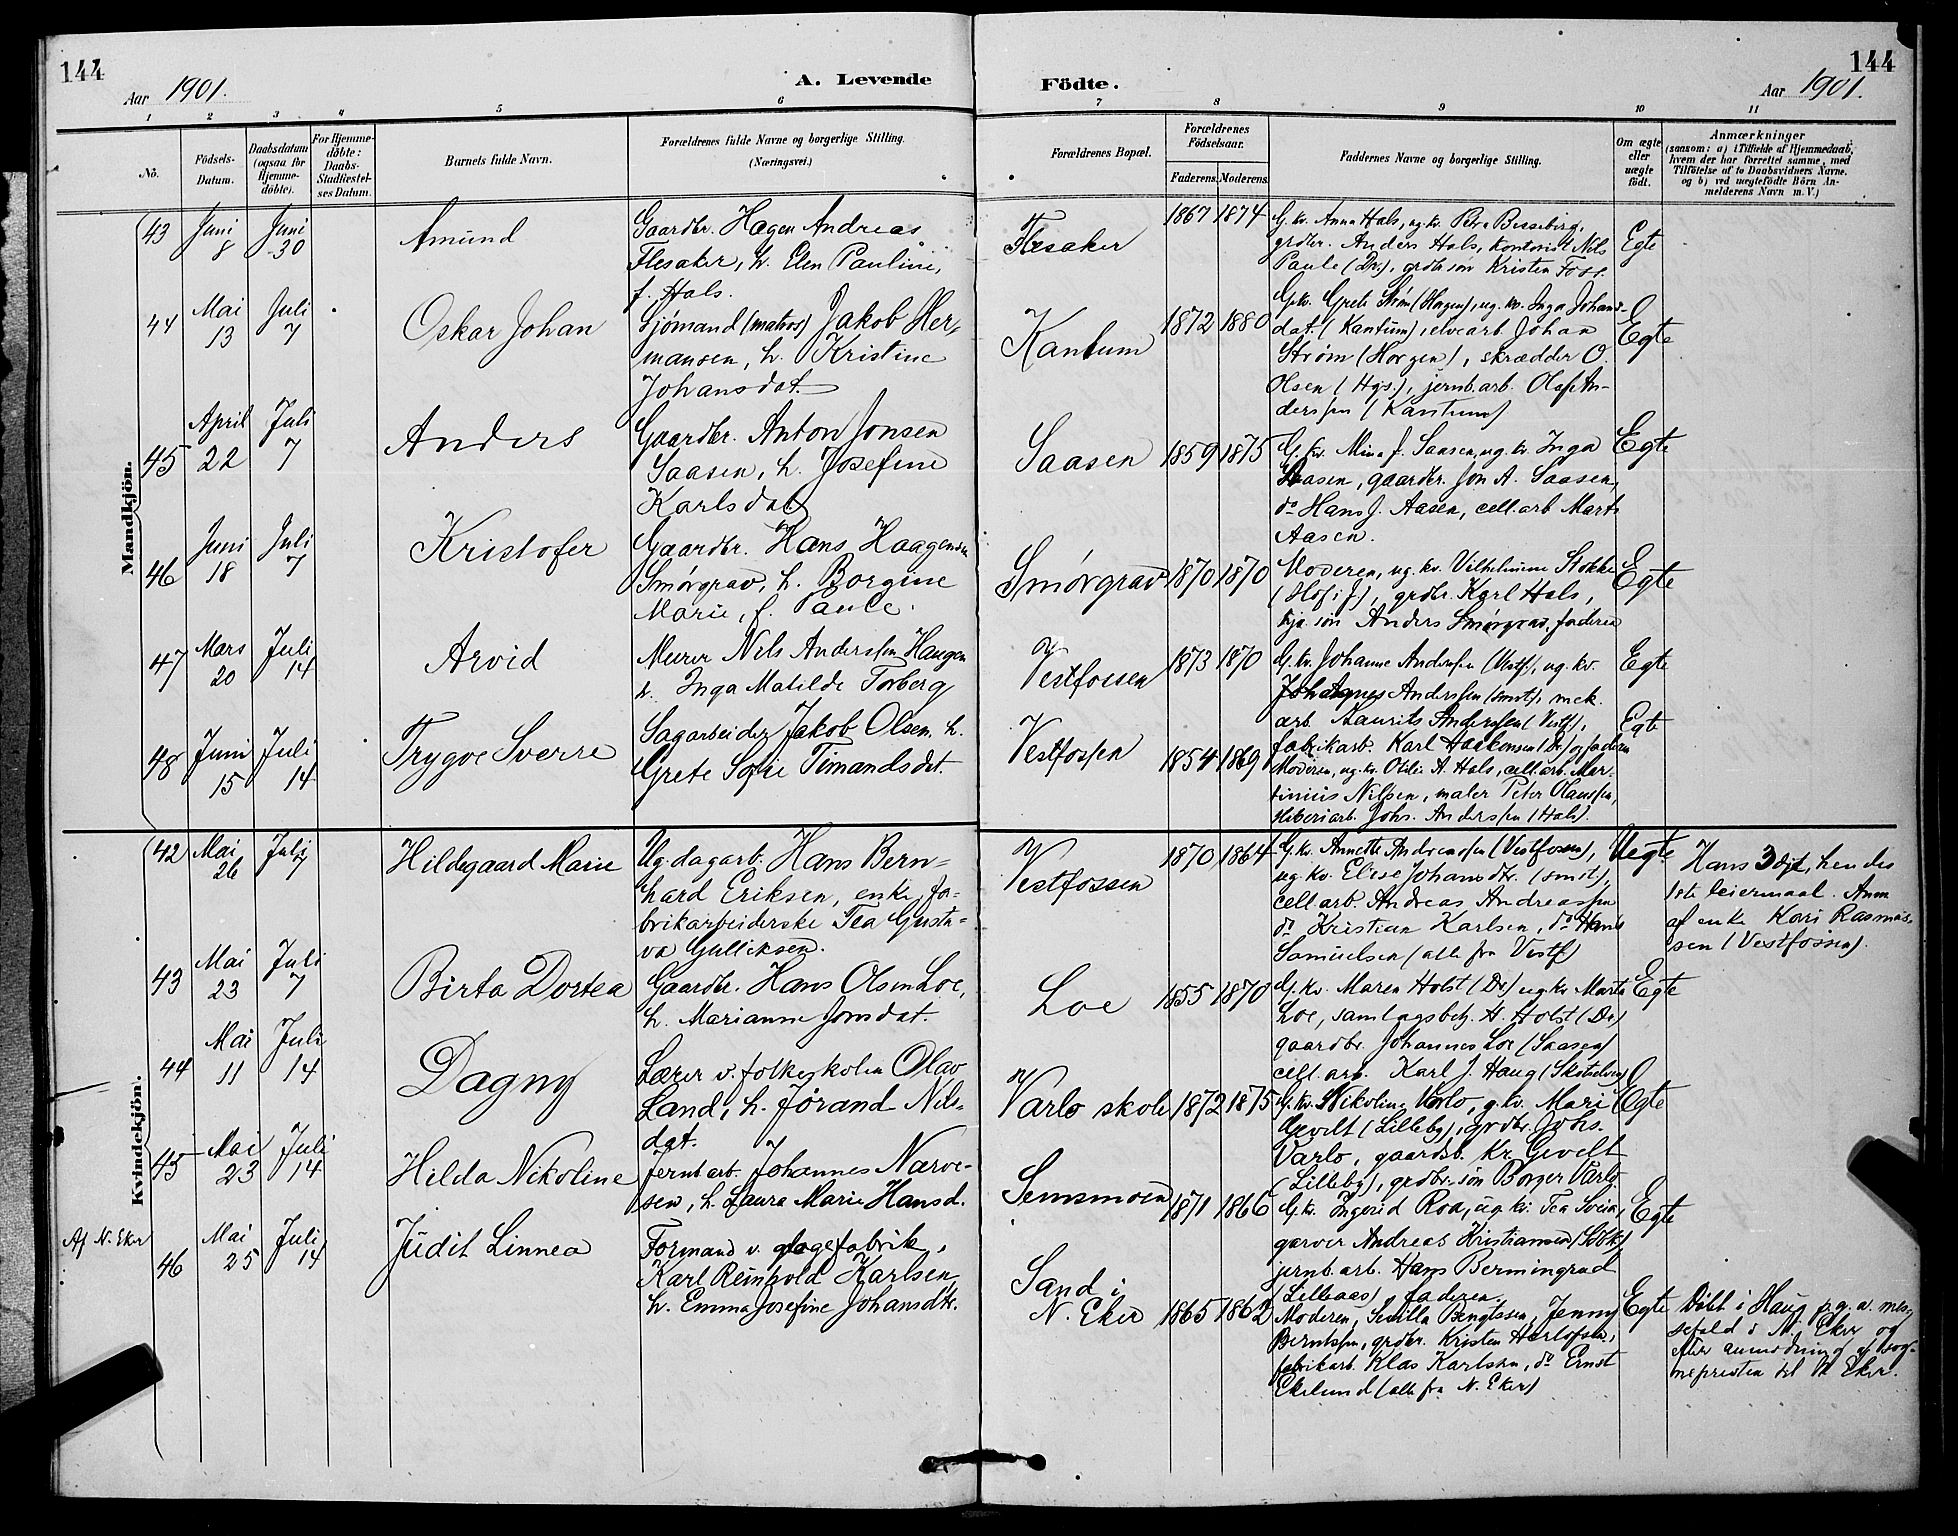 144
Aar 1901.
A. Levende
Födte.
144
Aar 1901.
1 2 3 4 5 6 7 8 9 10 11
No.
Födsels-
Datum.
Daabsdatum
(ogsaa for
Hjemme-
döbte).
For Hjemme-
döbte:
Daabs-
Stadfæstel-
ses Datum.
Barnets fulde Navn.
Forældrenes fulde Navne og borgerlige Stilling.
(Næringsvei.)
Forældrenes Bopæl.
Forældrenes
Födselsaar.
Faderens. Moderens.
Faddernes Navne og borgerlige Stilling.
Om ægte
eller
uægte
födt.
Anmærkninger
(saasom: a) i Tilfælde af Hjemmedaab,
hvem der har forrettet samme, med
Tilföielse af to Daabsvidners Navne.
og b) ved uægtefödte Börn An-
melderens Navn m. V.)
Mandkjön.
43 Juni 8 Juni 30
Amund
Gaardbr. Hagen Andreas
Flesaker, h. Elen Pauline,
f. Hals.
Flesaker
1867 1874
G. kv. Anna Hals, ug. kv. Petra Besseberg,
grdbr. Anders Hals, kontorist Nils
Paule (Dr.), grdbr.søn Kristen Foss.
Egte
44 Mai 13 Juli 7
Oskar Johan
Sjømand (matros) Jakob Her-
mansen, h. Kristine
Johansdat.
Kantum
1872 1880
G. kv. Grete Strøm (Hagen), ug. kv. Inga Johans-
dat. (Kantum), elvearb. Johan
Strøm (Horgen), skrædder O.
Olsen (Hgs.), jernb.arb. Olaf An-
derssen (Kantum)
Egte
45 April 22 Juli 7
Anders
Gaardbr. Anton Jonsen
Saasen, h. Josefine
Karlsdat.
Saasen
1859 1875
G. kv. Mina J. Saasen, ug. kv. Inga
Saasen, gaardbr. Jon A. Saasen,
do Hans J. Aasen, cell.arb. Marts
Aasen.
Egte
46 Juni 18 Juli 7
Kristofer
Gaardbr. Hans Haagensen
Smørgrav, h. Borgine
Marie, f. Paule.
Smørgrav
1870 1870
Moderen, ug. kv. Vilhelmine Stokke
(Hof i J), grdbr. Karl Hals,
søn Anders Smørgrav, faderen
Egte
47 Mars 20 Juli 14
Arvid
Murer Nils Anderssen Haugen
h. Inga Matilde Torberg
Vestfossen
1873 1870
G. kv. Johanne Anderssen (Vestf), ug. kv.
Agnes Anderssen (smst), mek.
arb. Laurits Anderssen (Vestf),
fabrikarb. Karl Haakonsen (Dr) og faderen
Egte
48 Juni 15 Juli 14
Trygve Sverre
Sagarbeider Jakob Olsen, h.
Grete Sofie Timandsdt.
Vestfossen
1854 1869
Moderen, ug. kv. Otilie A. Hals, cell.arb. Mar-
tinius Nilssen, maler Peter Olaussen,
sliberiarb. Johs. Anderssen (Hals).
Egte
Kvindekjön.
42 Mai 26 Juli 7
Hildegaard Marie
Ug. dagarb. Hans Bern-
hard Eriksen, enke fa-
brikarbeiderske Tea Gusta-
va Gulliksen.
Vestfossen
1870 1864
G. kv. Annette Andreassen (Vestfossen),
ug. kv. Elise Johansdtr. (smst),
cell.arb. Andreas Andreassen
do Kristian Karlsen, do Hans
Samuelsen (alle fra Vestf)
Uegte
Hans 3dje, hendes
1ste leiermaal. Anm
af enke Kari Rasmus-
sen (Vestfossen).
43 Mai 23 Juli 7
Birta Dortea
Gaardbr. Hans Olsen Loe,
h. Marianne Jonsdat.
Loe
1855 1870
G. kv. Maren Holst (Dr) ug. kv. Marta
Loe, samlagsbetj. H. Holst (Dr)
gaardbr. Johannes Loe (Saasen)
cell. arb. Karl J. Haug (Skotselven)
Egte
44 Mai 11 Juli 14
Dagny
Lærer v. folkeskolen Olav
Land, h. Jørand Nils-
dat.
Varlo skole
1872 1875
G. kv. Nikoline Varlo, g. kv. Mari
Gevelt (Lilleby), grdbr. Johs.
Varlo, gaardsb. Kr. Gevelt
(Lilleby), grdbr.-søn Borger Varlo.
Egte
45 Mai 23 Juli 14
Hilda Nikoline
Jernb.arb. Johannes Narve-
sen, h. Laura Marie Hansd.
Semsmoen
1871 1866
G. kv. Ingerid Roa, ug. kv. Tea Sveia,
garver Andreas Kristiansen
jernb. arb. Hans Bermingrud
(Lilleaas), faderen.
Egte
Af N. Eker
46 Mai 25 Juli 14
Judit Linnea
Formand v. glagefabrik,
Karl Reinhold Karlsen,
h. Emma Josefine Johansdtr.
Sand i
N. Eker
1865 1862
Moderen, Sevilla Bengtssen, Jenny
Berntssen, grdbr. Kristen Herlofsen,
fabrikarb. Klas Karlsen, do Ernst
Ekelund (alle fra N. Eker)
Egte
Døbt i Haug p.g.a. mes-
sefald i N. Eker og
efter anmodning af sog-
nepresten til N. Eker.